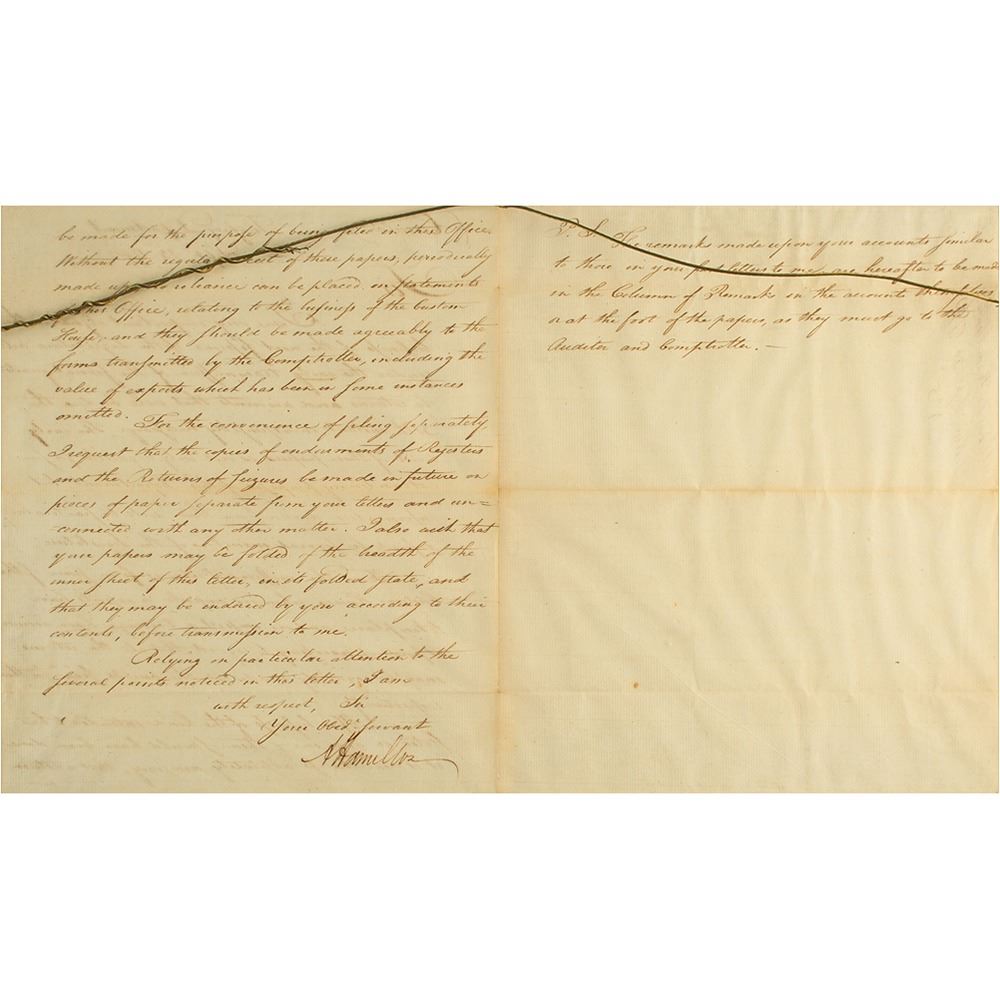 be made for the purpose of being filed in this Office.
Without the regular of these papers, periodically
made up, no reliance can be placed on Statements
Office, relating to the business of the Custom
House; and they should be made agreeably to the
forms transmitted by the Comptroller, including the
value of exports which has been in some instances
omitted.
For the convenience of filing separately
I request that the copies of endorsments of Registers
and the Returns of Seizures be made in future on
pieces of paper separate from your letters and un=
=connected with any other matter. I also wish that
your papers may be folded of the breadth of the
inner sheet of this letter, in its folded state, and
that they may be endorsed by you according to their
contents, before transmission to me.
Relying on particular attention to the
several points noticed in this letter, I am
with respect, Sir
Your Obedt. Servant
AHamilton
P.S. The remarks made upon your accounts similar
to those in your letters to me are hereafter to be made
in the Column of Remarks in the accounts themselves
or at the foot of the papers, as they must go to the
Auditor and Comptroller. —